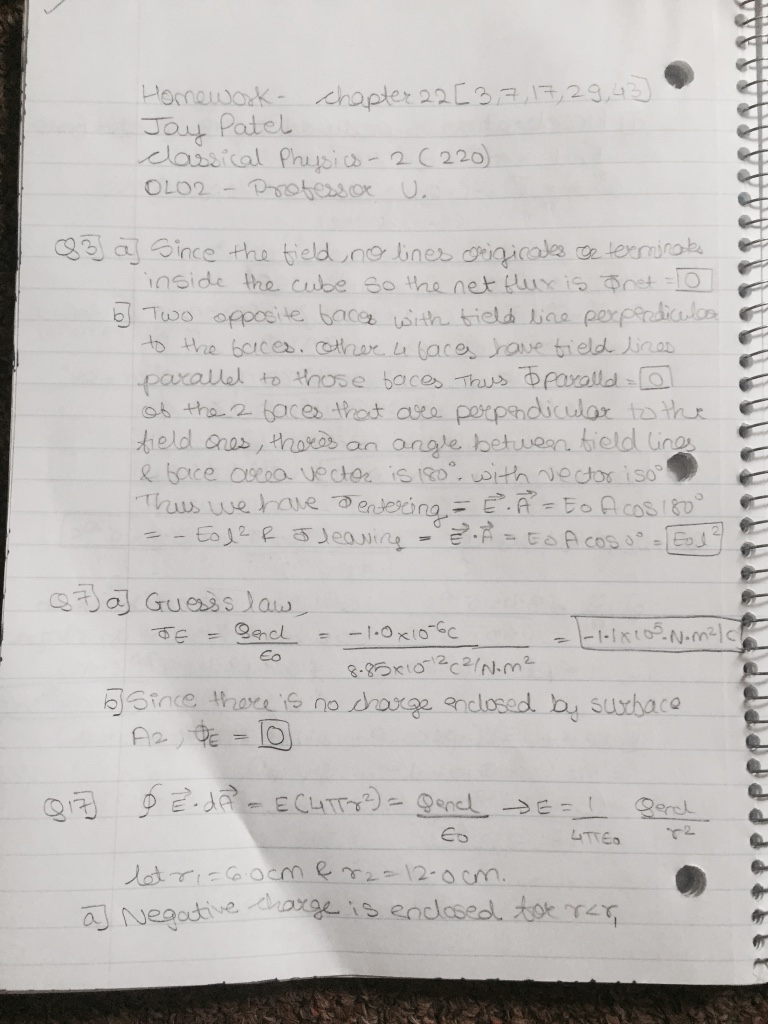 Homework - chapter 22 [3,7,17,29,43]
Jay Patel
classical Physics - 2 (220)
OL02 - Professor U.
Q3] a] Since the field, no lines originates or terminates
inside the cube so the net flux is Φnet = 0
b] Two opposite faces with field line perpendicular
to the faces. other 4 faces have field lines
parallel to those faces Thus Φparallel = 0
of the 2 faces that are perpendicular to the
field ones, there's an angle between field lines
& face area vector is 180°. with vector is 0°
Thus we have Φentering = E⃗·A⃗ = E0 A cos 180°
= - E0l² & Φleaving = E⃗·A⃗ = E0 A cos 0° = E0l²
Q7] a] Guess's law,
ΦE = Qencl/ε0 = -1.0x10⁻⁶C / 8.85x10⁻¹²C²/N.m² = -1.1x10⁵.N.m²/C
b] Since there is no charge enclosed by surface
A2, ΦE = 0
Q17] ∮ E⃗·dA⃗ = E(4πr²) = Qencl/ε0 → E = 1/4πε0 Qencl/r²
let r₁ = 6.0cm & r₂ = 12.0cm.
a] Negative charge is enclosed for r<r₁